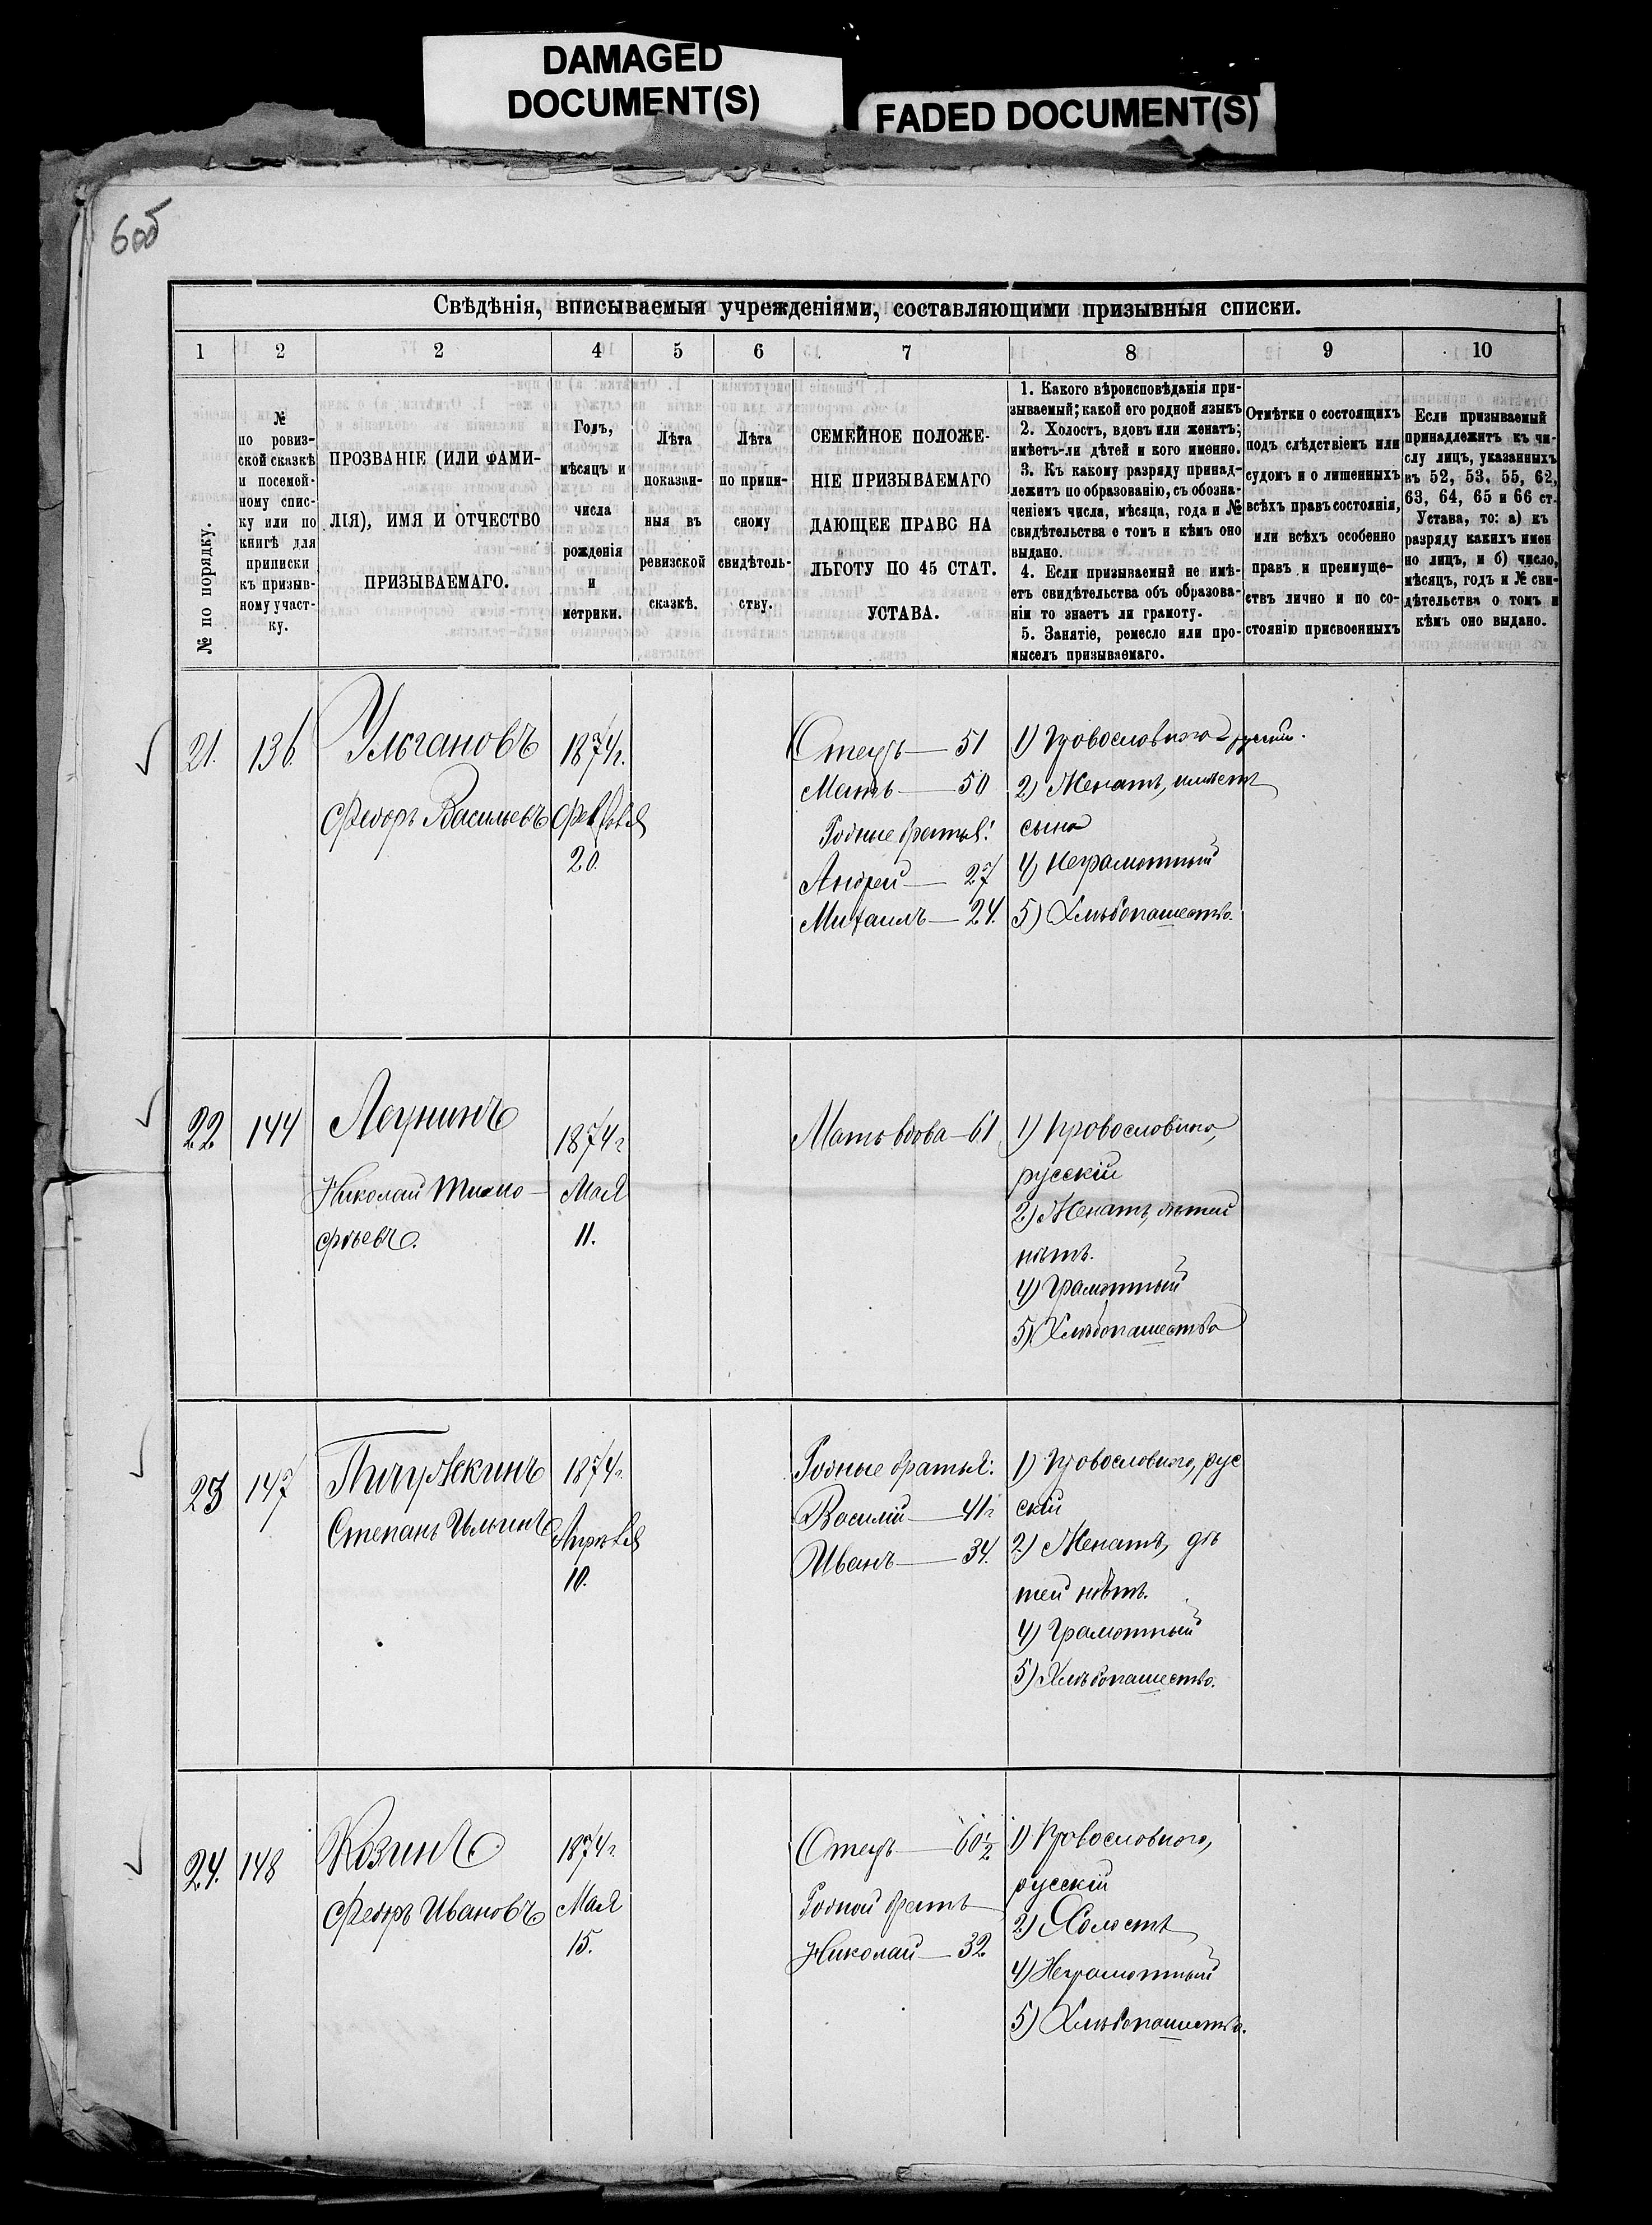 DAMAGED
DOCUMENT(S)
FADED DOCUMENT(S)
6об
Свѣдѣнія, вписываемыя учрежденіями, составляющими призывныя списки.
1 2 2 4 5 6 7 8 9 10
№ по порядку.
№
по ровиз-
ской сказкѣ
и посемей-
ному спис-
ку или по
книгѣ для
приписки
къ призыв-
ному участ-
ку.
ПРОЗВАНІЕ (ИЛИ ФАМИ-
ЛІЯ), ИМЯ И ОТЧЕСТВО
ПРИЗЫВАЕМАГО.
Годъ,
мѣсяцъ и
числа
рожденія
и
метрики.
Лѣта
показан-
ныя въ
ревизской
сказкѣ.
Лѣта
по припи-
сному
свидѣтель-
ству.
СЕМЕЙНОЕ ПОЛОЖЕ-
НІЕ ПРИЗЫВАЕМАГО
ДАЮЩЕЕ ПРАВО НА
ЛЬГОТУ ПО 45 СТАТ.
УСТАВА.
1. Какого вѣроисповѣданія при-
зываемый; какой его родной языкъ
2. Холостъ, вдовъ или женатъ;
имѣетъ-ли дѣтей и кого именно.
3. Къ какому разряду принад-
лежитъ по образованію, съ обозна-
ченіемъ числа, мѣсяца, года и №
свидѣтельства о томъ и кѣмъ оно
выдано.
4. Если призываемый не имѣ-
етъ свидѣтельства объ образова-
ніи то знаетъ ли грамоту.
5. Занятіе, ремесло или про-
мыселъ призываемаго.
Отмѣтки о состоящихъ
подъ слѣдствіемъ или
судомъ и о лишенныхъ
всѣхъ правъ состоянія,
или всѣхъ особенно
правъ и преимуще-
ствъ лично и по со-
стоянію присвоенныхъ
Если призываемый
принадлежитъ къ чи-
слу лицъ, указанныхъ
въ 52, 53, 55, 62,
63, 64, 65 и 66 ст.
Устава, то: а) къ
разряду какихъ имен
но лицъ, и б) число,
мѣсяцъ, годъ и № сви-
дѣтельства о томъ и
кѣмъ оно выдано.
21. 136.
Ульгановъ
Федоръ Васильевъ
1874г.
Февраля
20.
Отецъ — 51
Мать — 50
Родные братья:
Андрей — 27
Михаилъ — 24.
1) Православного русскій.
2) Женатъ, имѣетъ
сына
4) Неграмотный
5) Хлѣбопашество.
22 144
Легунинъ
Николай Тимо-
фѣевъ.
1874г
Мая
11.
Мать вдова — 61
1) Православного,
русскій
2) Женатъ, дѣтей
нѣтъ.
4) Грамотный
5) Хлѣбопашество
23 147
Пичужкинъ
Степанъ Ильинъ
1874г.
Апрѣля
10.
Родные братья:
Василій — 41г
Иванъ — 34.
1) Православного, рус
скій
2) Женатъ, дѣ
тей нѣтъ.
4) Грамотный
5) Хлѣбопашество.
24. 148
Козинъ
Федоръ Ивановъ
1874г.
Мая
15.
Отецъ — 60½
Родной братъ
Николай — 32
1) Православного,
русскій
2) Холостъ
4) Неграмотный
5) Хлѣбопашество.